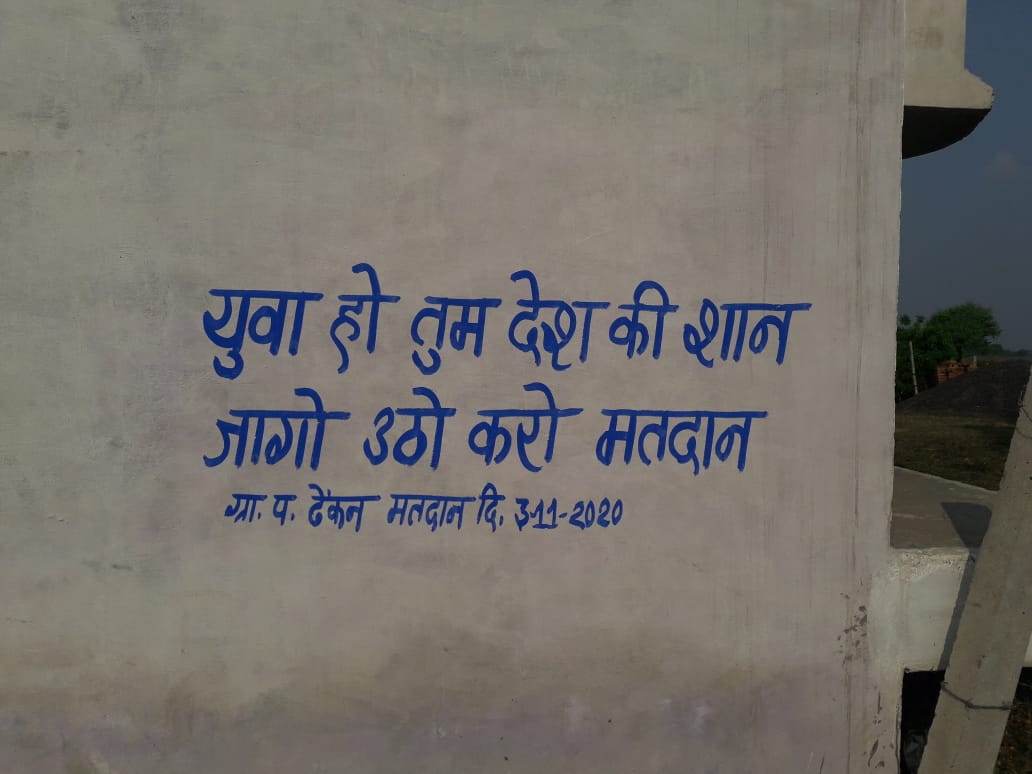 युवा हो तुम देश की शान
जागो उठो करो मतदान
ग्रा. प. ढेंकन मतदान दि. 3-11-2020